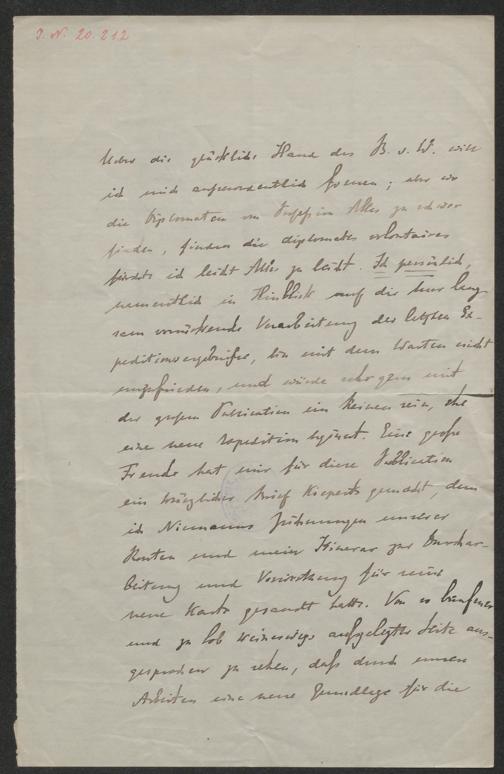 J. N. 20.212
Ueber die glückliche Hand des B. v. W. will
ich mich ausserordentlich freuen; aber wo
die Diplomaten von Profession Alles zu schwer
finden, finden die diplomates volontaires
fürchte ich leicht Alles zu leicht. Ich persönlich,
namentlich in Hinblick auf die nur lang-
sam vorrückende Verarbeitung der letzten Ex-
peditionsergebnisse, bin mit dem Warten nicht
unzufrieden, und würde sehr gern mit
der grossen Publication im Reinen sein, ehe
eine neue Expedition beginnt. Eine große
Freude hat mir für diese Publication
ein kürzlicher Brief Kieperts gemacht, dem
ich Niemanns Zeichnungen unserer
Routen und mein Itinerar zur Durchar-
beitung und Verwerthung für seine
neue Karte gesandt hatte. Von so berufener
und zu Lob keineswegs aufgelegter Seite aus-
gesprochen zu sehen, daß durch unsere
Arbeiten eine neue Grundlage für die